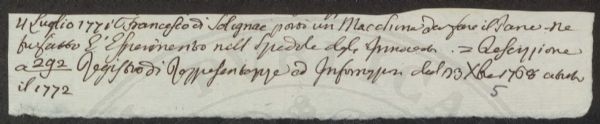 4 Luglio 1771 Francesco di Solignac portò un Macchina da fare il Pane. Ne
fu fatto l'Esperimento nello Spedale degl'Innocenti. = Relazione
a 292 Registro di Rappresentanze ed Informazioni dal 23 Xbre 1768 a tutto
il 1772
5